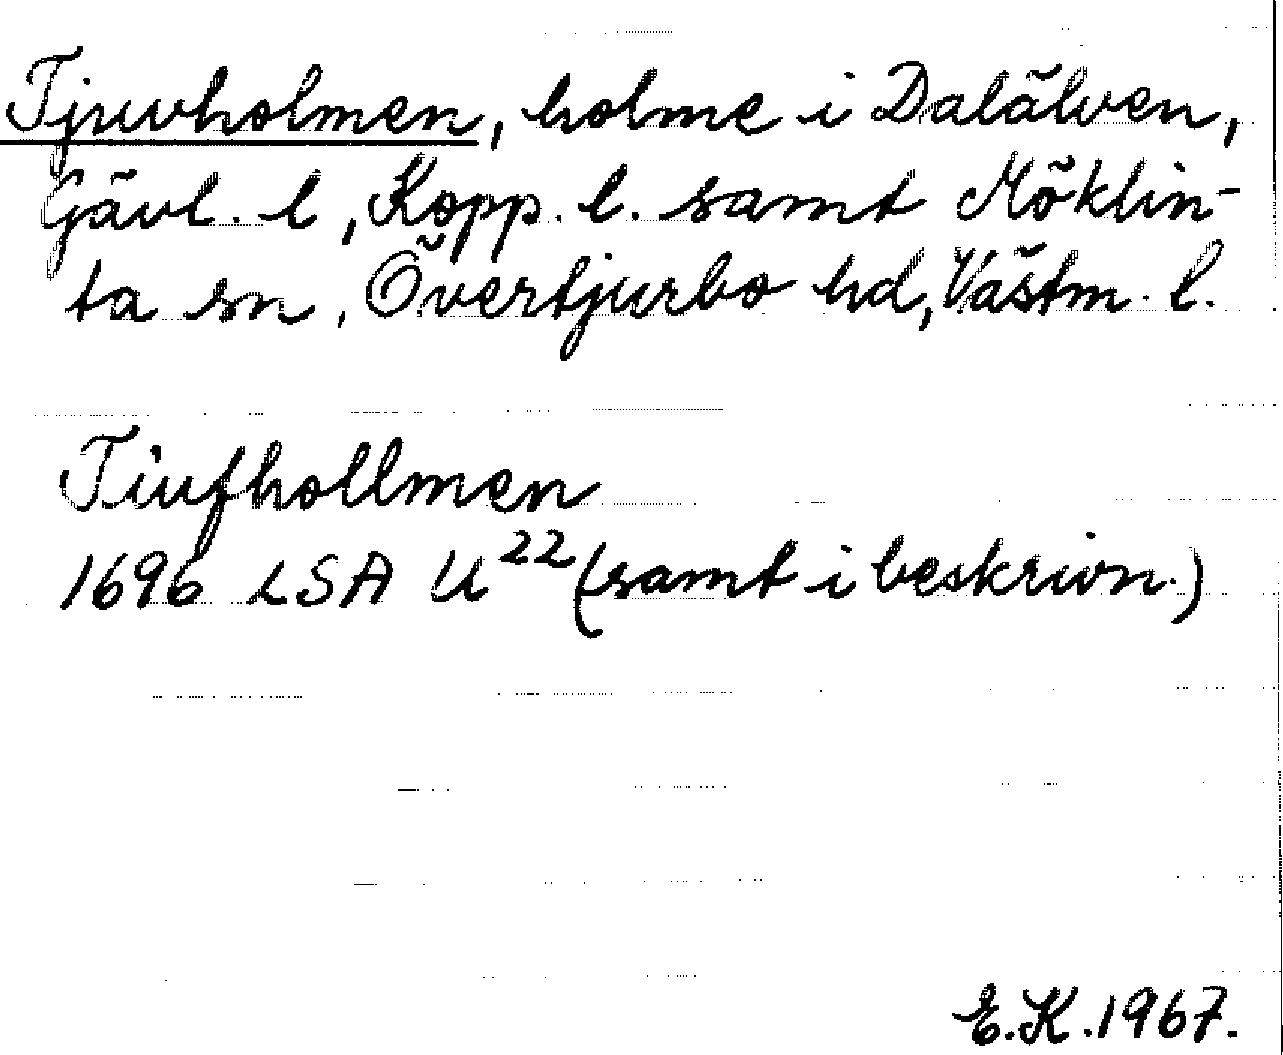 Tjuvholmen, holme i Dalälven,
Gävl. l, Kopp. l. samt Möklin-
ta sn, Övertjurbo hd, Västm. l.
Tiufhollmen
1696 LSA U²² (samt i beskrivn.)
E.K. 1967.